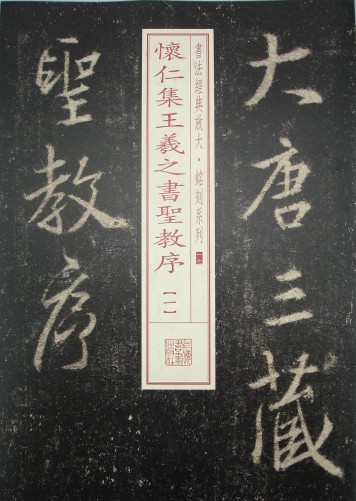 大唐三藏
聖教序
書法經典放大·銘刻系列
懷仁集王羲之書聖教序
【一】